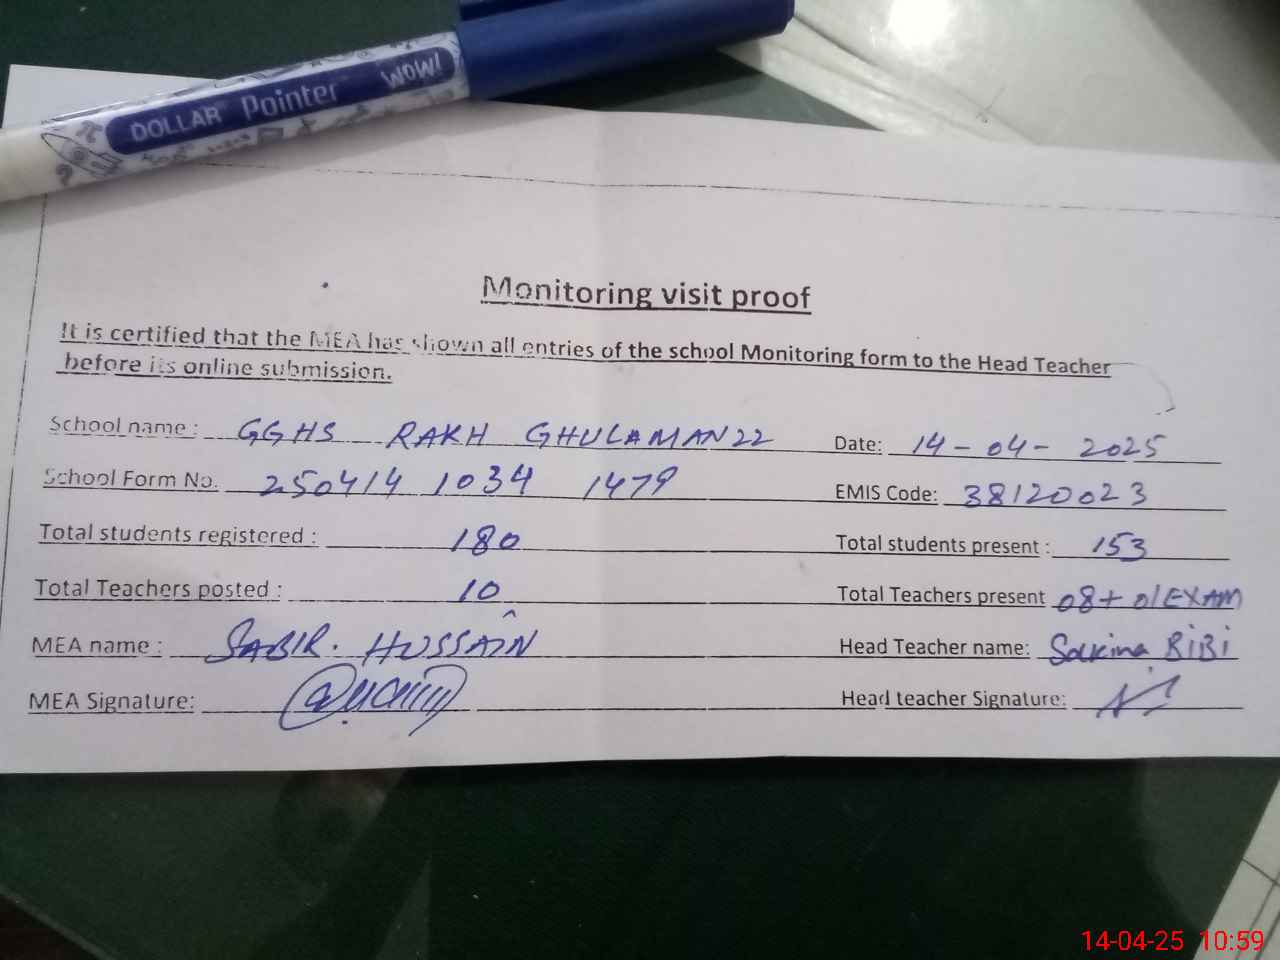 DOLLAR Pointer WOW!
Monitoring visit proof
It is certified that the MEA has shown all entries of the school Monitoring form to the Head Teacher
before its online submission.
School name : GGHS RAKH GHULAMAN 22 Date: 14-04-2025
School Form No. 250414 1034 1479 EMIS Code: 38120023
Total students registered : 180 Total students present : 153
Total Teachers posted : 10 Total Teachers present 08+01EXAM
MEA name : SABIR. HUSSAIN Head Teacher name: Sakina BiBi
MEA Signature: Head teacher Signature:
14-04-25 10:59